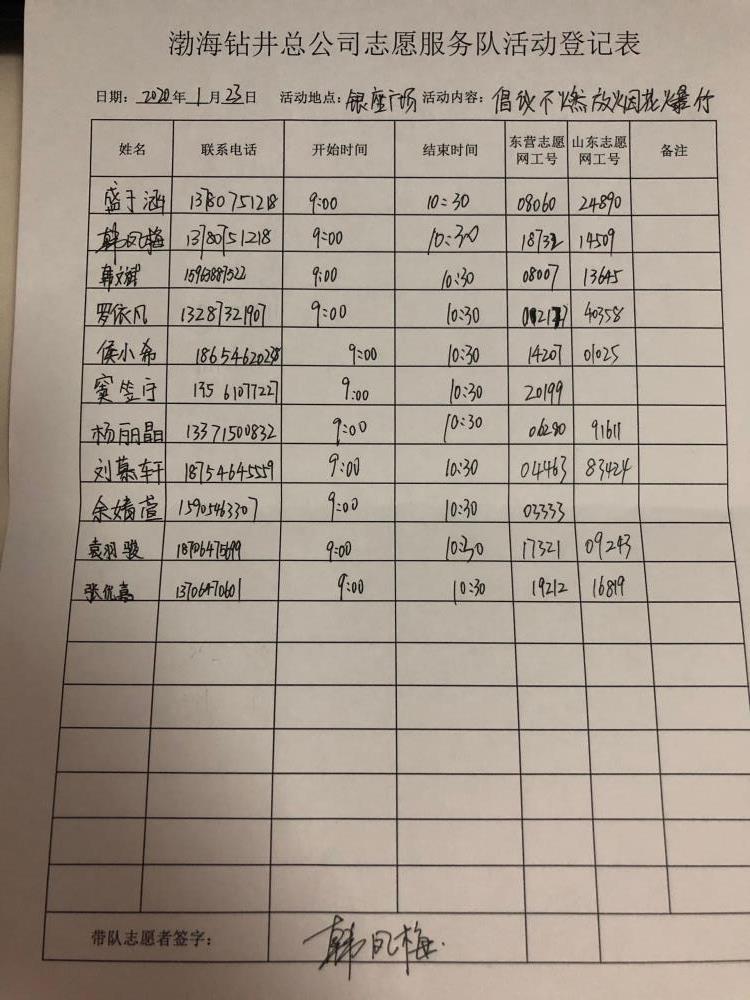 渤海钻井总公司志愿服务队活动登记表
日期： 2020 年 1 月 23 日 活动地点：银座广场 活动内容：倡议不燃放烟花爆竹
姓名 联系电话 开始时间 结束时间 东营志愿网工号 山东志愿网工号 备注
盛于涵 13780751218 9:00 10:30 08060 24890
韩凤梅 13780751218 9:00 10:30 18732 14509
韩文斌 15963887522 9:00 10:30 08007 13645
罗依凡 13287321907 9:00 10:30 40358
侯小希 9:00 10:30 14207 01025
窦笠宁 13561077227 9:00 10:30 20199
杨丽晶 13371500832 9:00 10:30 06280 91611
刘慕轩 18754645559 9:00 10:30 04463 83424
余婧萱 15905463307 9:00 10:30 03333
袁羽骏 18706475699 9:00 10:30 17321 09243
张侃嘉 13706470601 9:00 10:30 19212 16819
带队志愿者签字： 韩凤梅